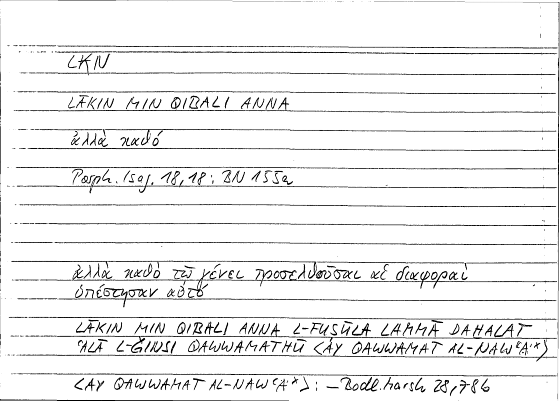 LKN
LĀKIN MIN QIBALI ANNA
ἀλλὰ καθό
Porph. Isag. 18,18; BN 155a
ἀλλὰ καθὸ τῷ γένει προσελθοῦσαι αἱ διαφοραὶ
ὑπέστησαν αὐτό
LĀKIN MIN QIBALI ANNA L-FUṢŪLA LAMMĀ DAHALAT
ʿALĀ L-ǦINSI QAWWAMATHŪ <AY QAWWAMAT AL-NAWʿA*>
<AY QAWWAMAT AL-NAWʿA*>: – Bodl. Marsh 28,78b